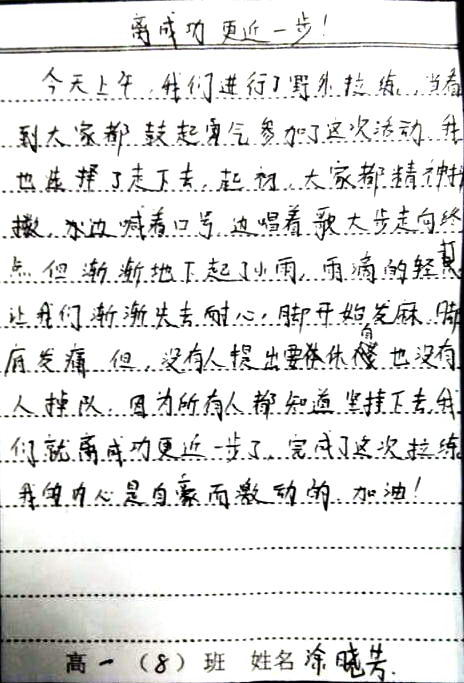 离成功更近一步!
今天上午,我们进行了野外拉练,当看
到大家都鼓起勇气参加了这次活动,我
也选择了走下去,起初,大家都精神抖
擞,边喊着口号,边唱着歌大步走向终
点但渐渐地下起了小雨,雨滴的轻打
让我们渐渐失去耐心,脚开始发麻,脚
底发痛,但,没有人提出要休息也没有
人掉队,因为所有人都知道坚持下去,我
们就离成功更近一步了,完成了这次拉练
我的内心是自豪而激动的,加油!
高一(8)班 姓名 涂晓芳.